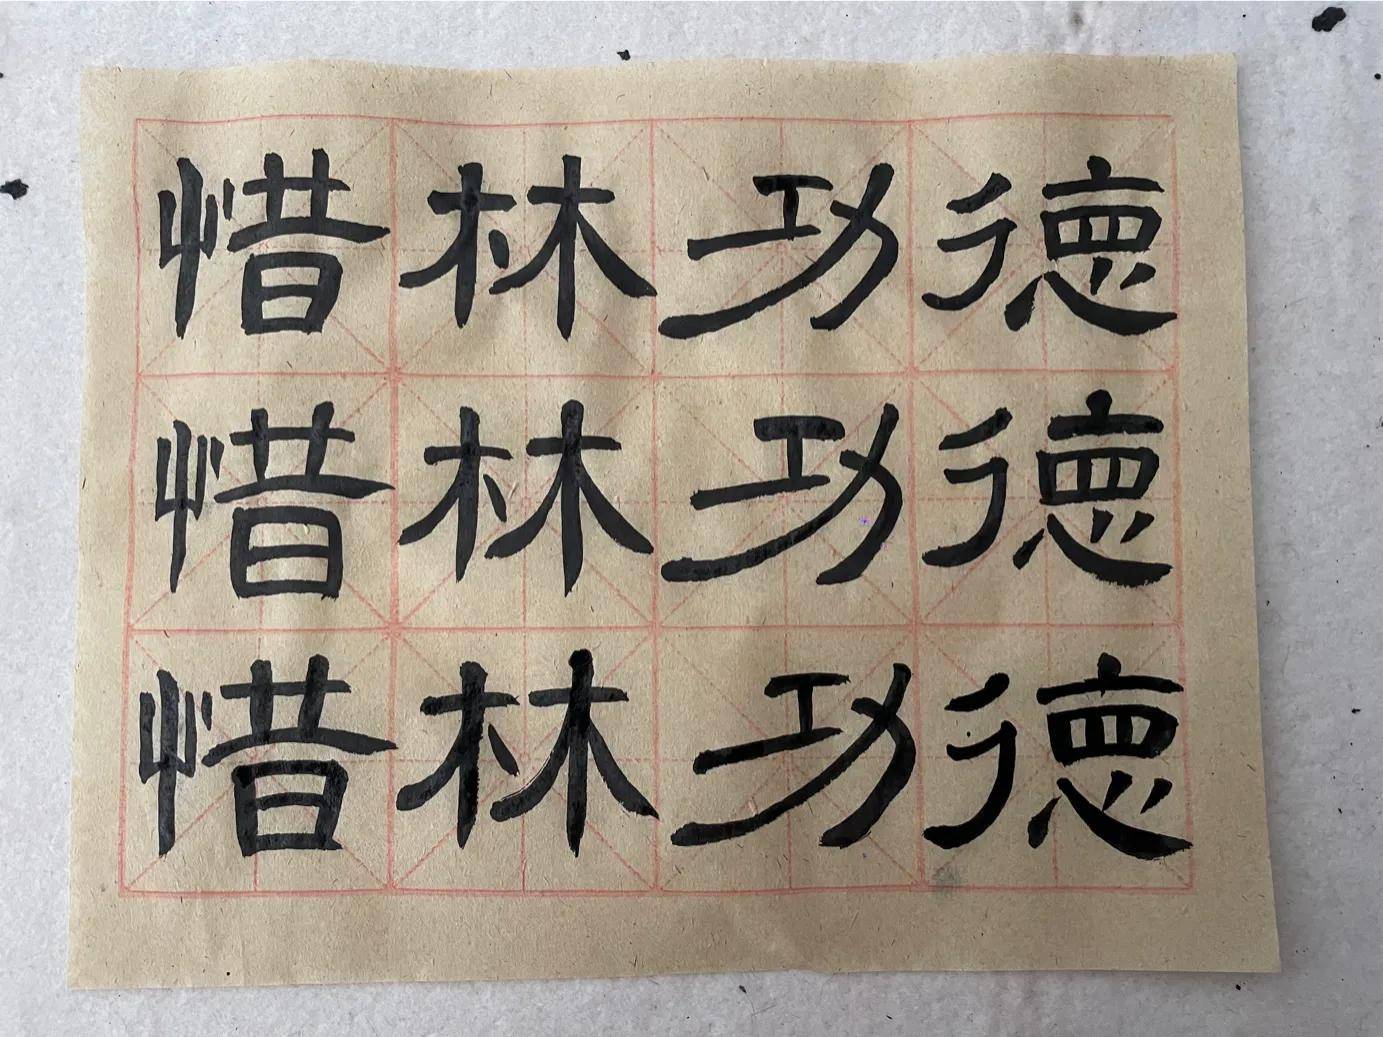 惜林功德
惜林功德
惜林功德